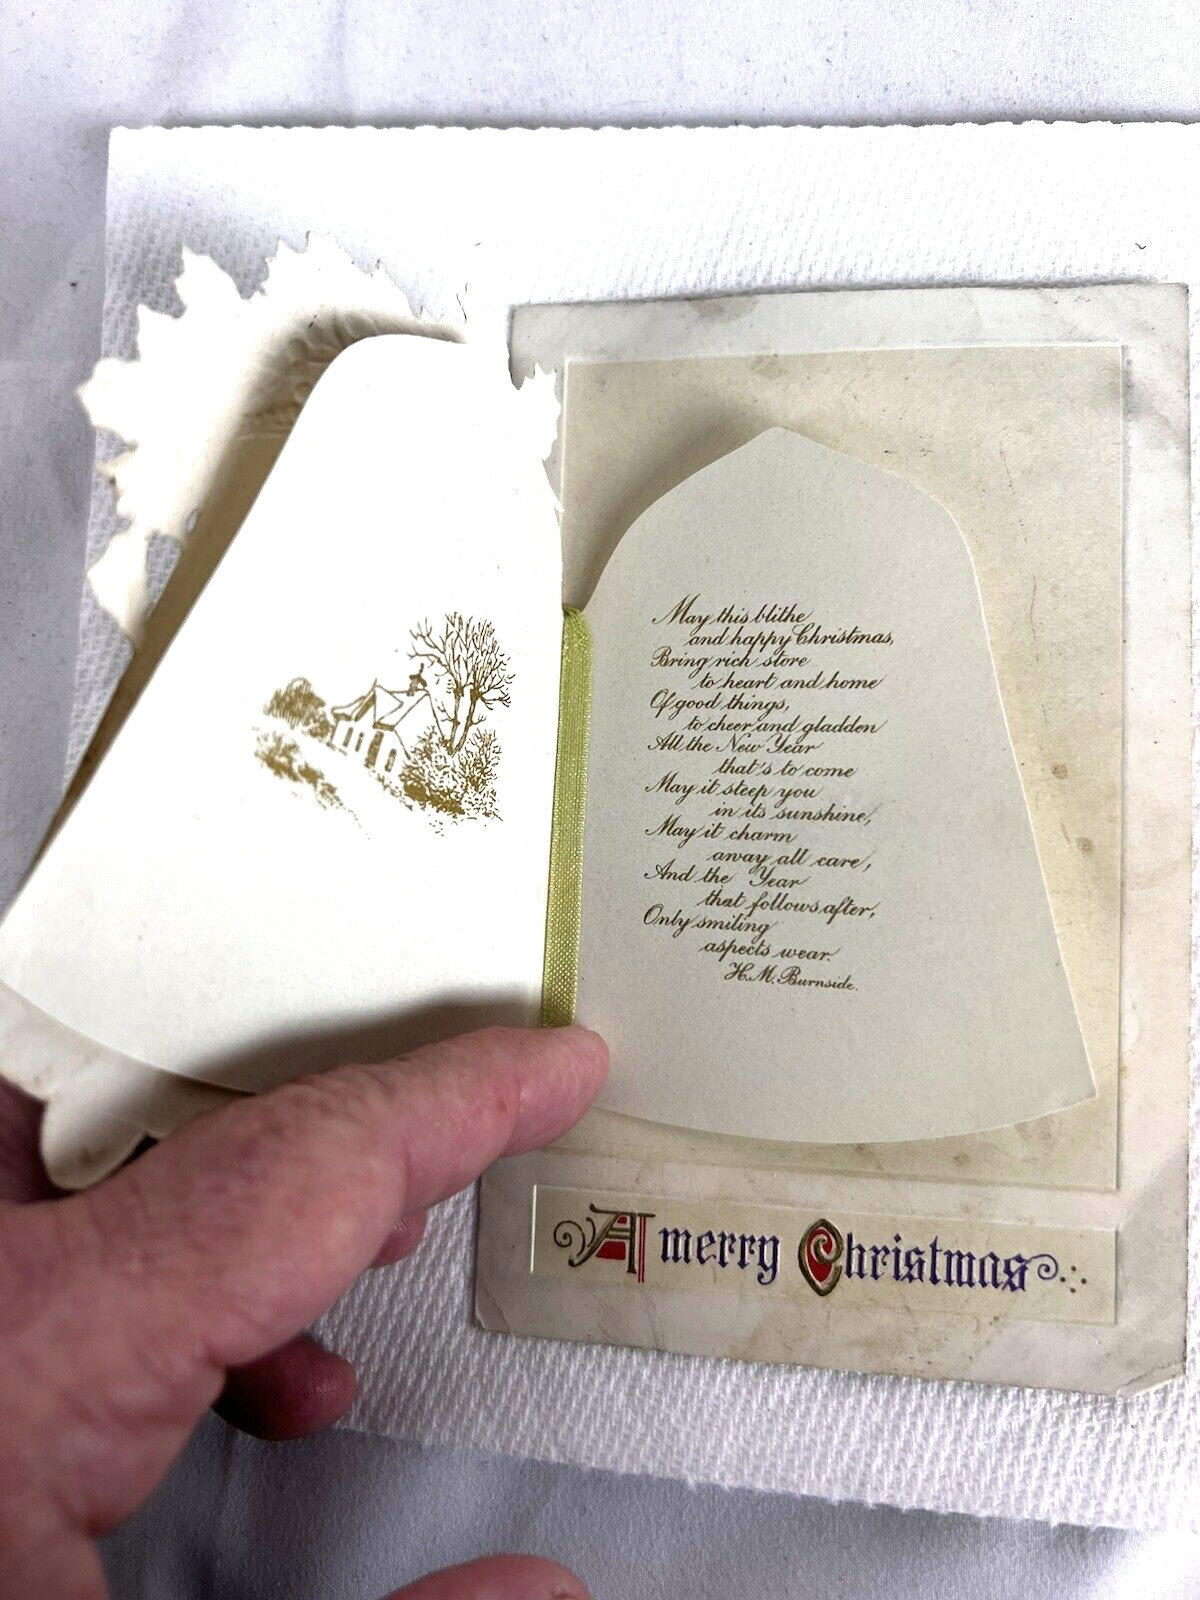 May this blithe
and happy Christmas,
Bring rich store
to heart and home
Of good things,
to cheer and gladden
All the New Year
that's to come
May it steep you
in its sunshine,
May it charm
away all care,
And the Year
that follows after,
Only smiling
aspects wear.
H. M. Burnside.
A merry Christmas